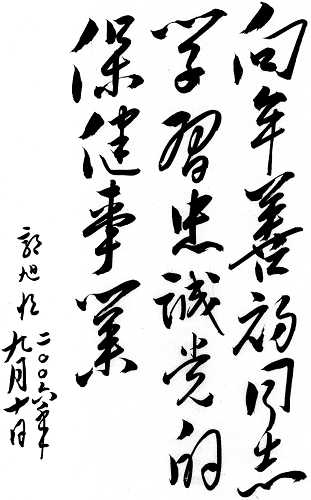 向年善福同志
学习忠诚党的
保健事业
郭旭恒
二〇〇六年
九月十日